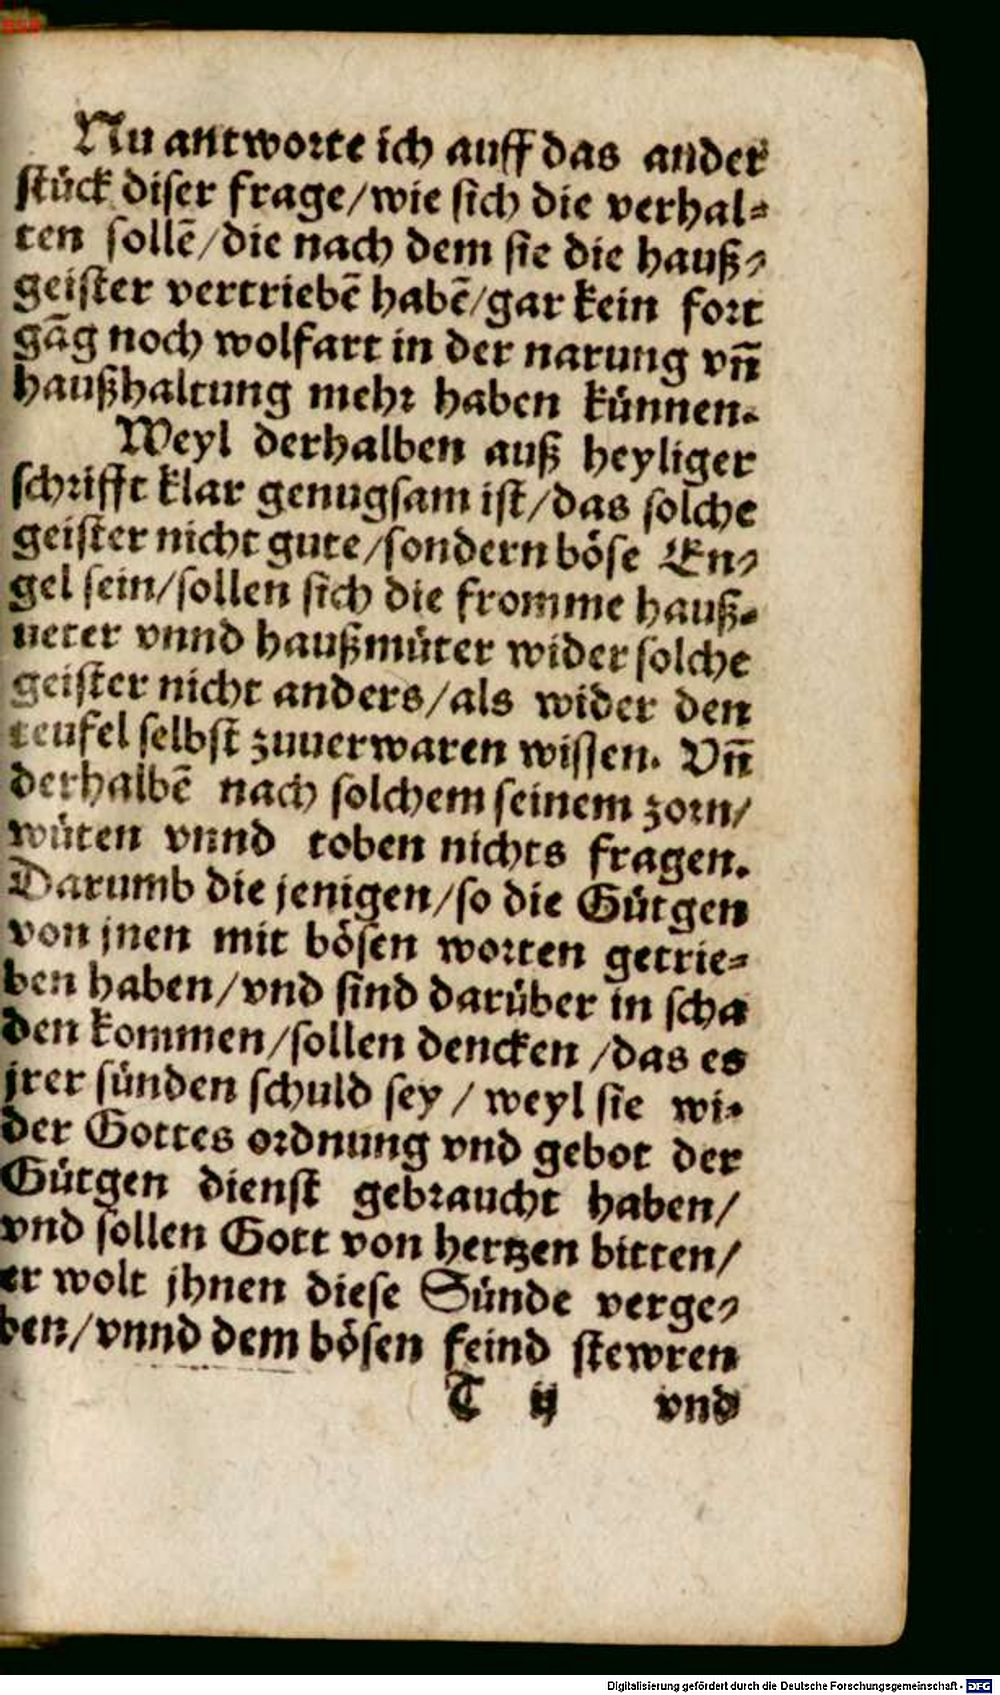 Nu antworte ich auff das ander
stück diser frage/wie sich die verhal=
ten sollẽ/die nach dem sie die hauß=
geister vertriebẽ habẽ/gar kein fort
gãg noch wolfart in der narung vñ
haußhaltung mehr haben künnen.
Weyl derhalben auß heyliger
schrifft klar genugsam ist/das solche
geister nicht gute/sondern böse En=
gel sein/sollen sich die fromme hauß=
ueter vnnd haußmüter wider solche
geister nicht anders/als wider den
teufel selbst zuuerwaren wissen. Vñ
derhalbẽ nach solchem seinem zorn/
wüten vnnd toben nichts fragen.
Darumb die jenigen/so die Gütgen
von jnen mit bösen worten getrie=
ben haben/vnd sind darüber in scha
den kommen/sollen dencken/das es
jrer sünden schuld sey/weyl sie wi=
der Gottes ordnung vnd gebot der
Gütgen dienst gebraucht haben/
vnd sollen Gott von hertzen bitten/
er wolt jhnen diese Sünde verge=
ben/vnnd dem bösen feind stewren
T ij vnd
Digitalisierung gefördert durch die Deutsche Forschungsgemeinschaft - DFG